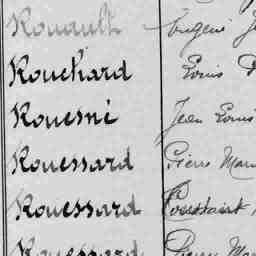 Rouault Eugène
Rouchard Louis
Rouesné Jean Louis
Rouessard Pierre
Rouessard Toussaint
Rouessard Pierre